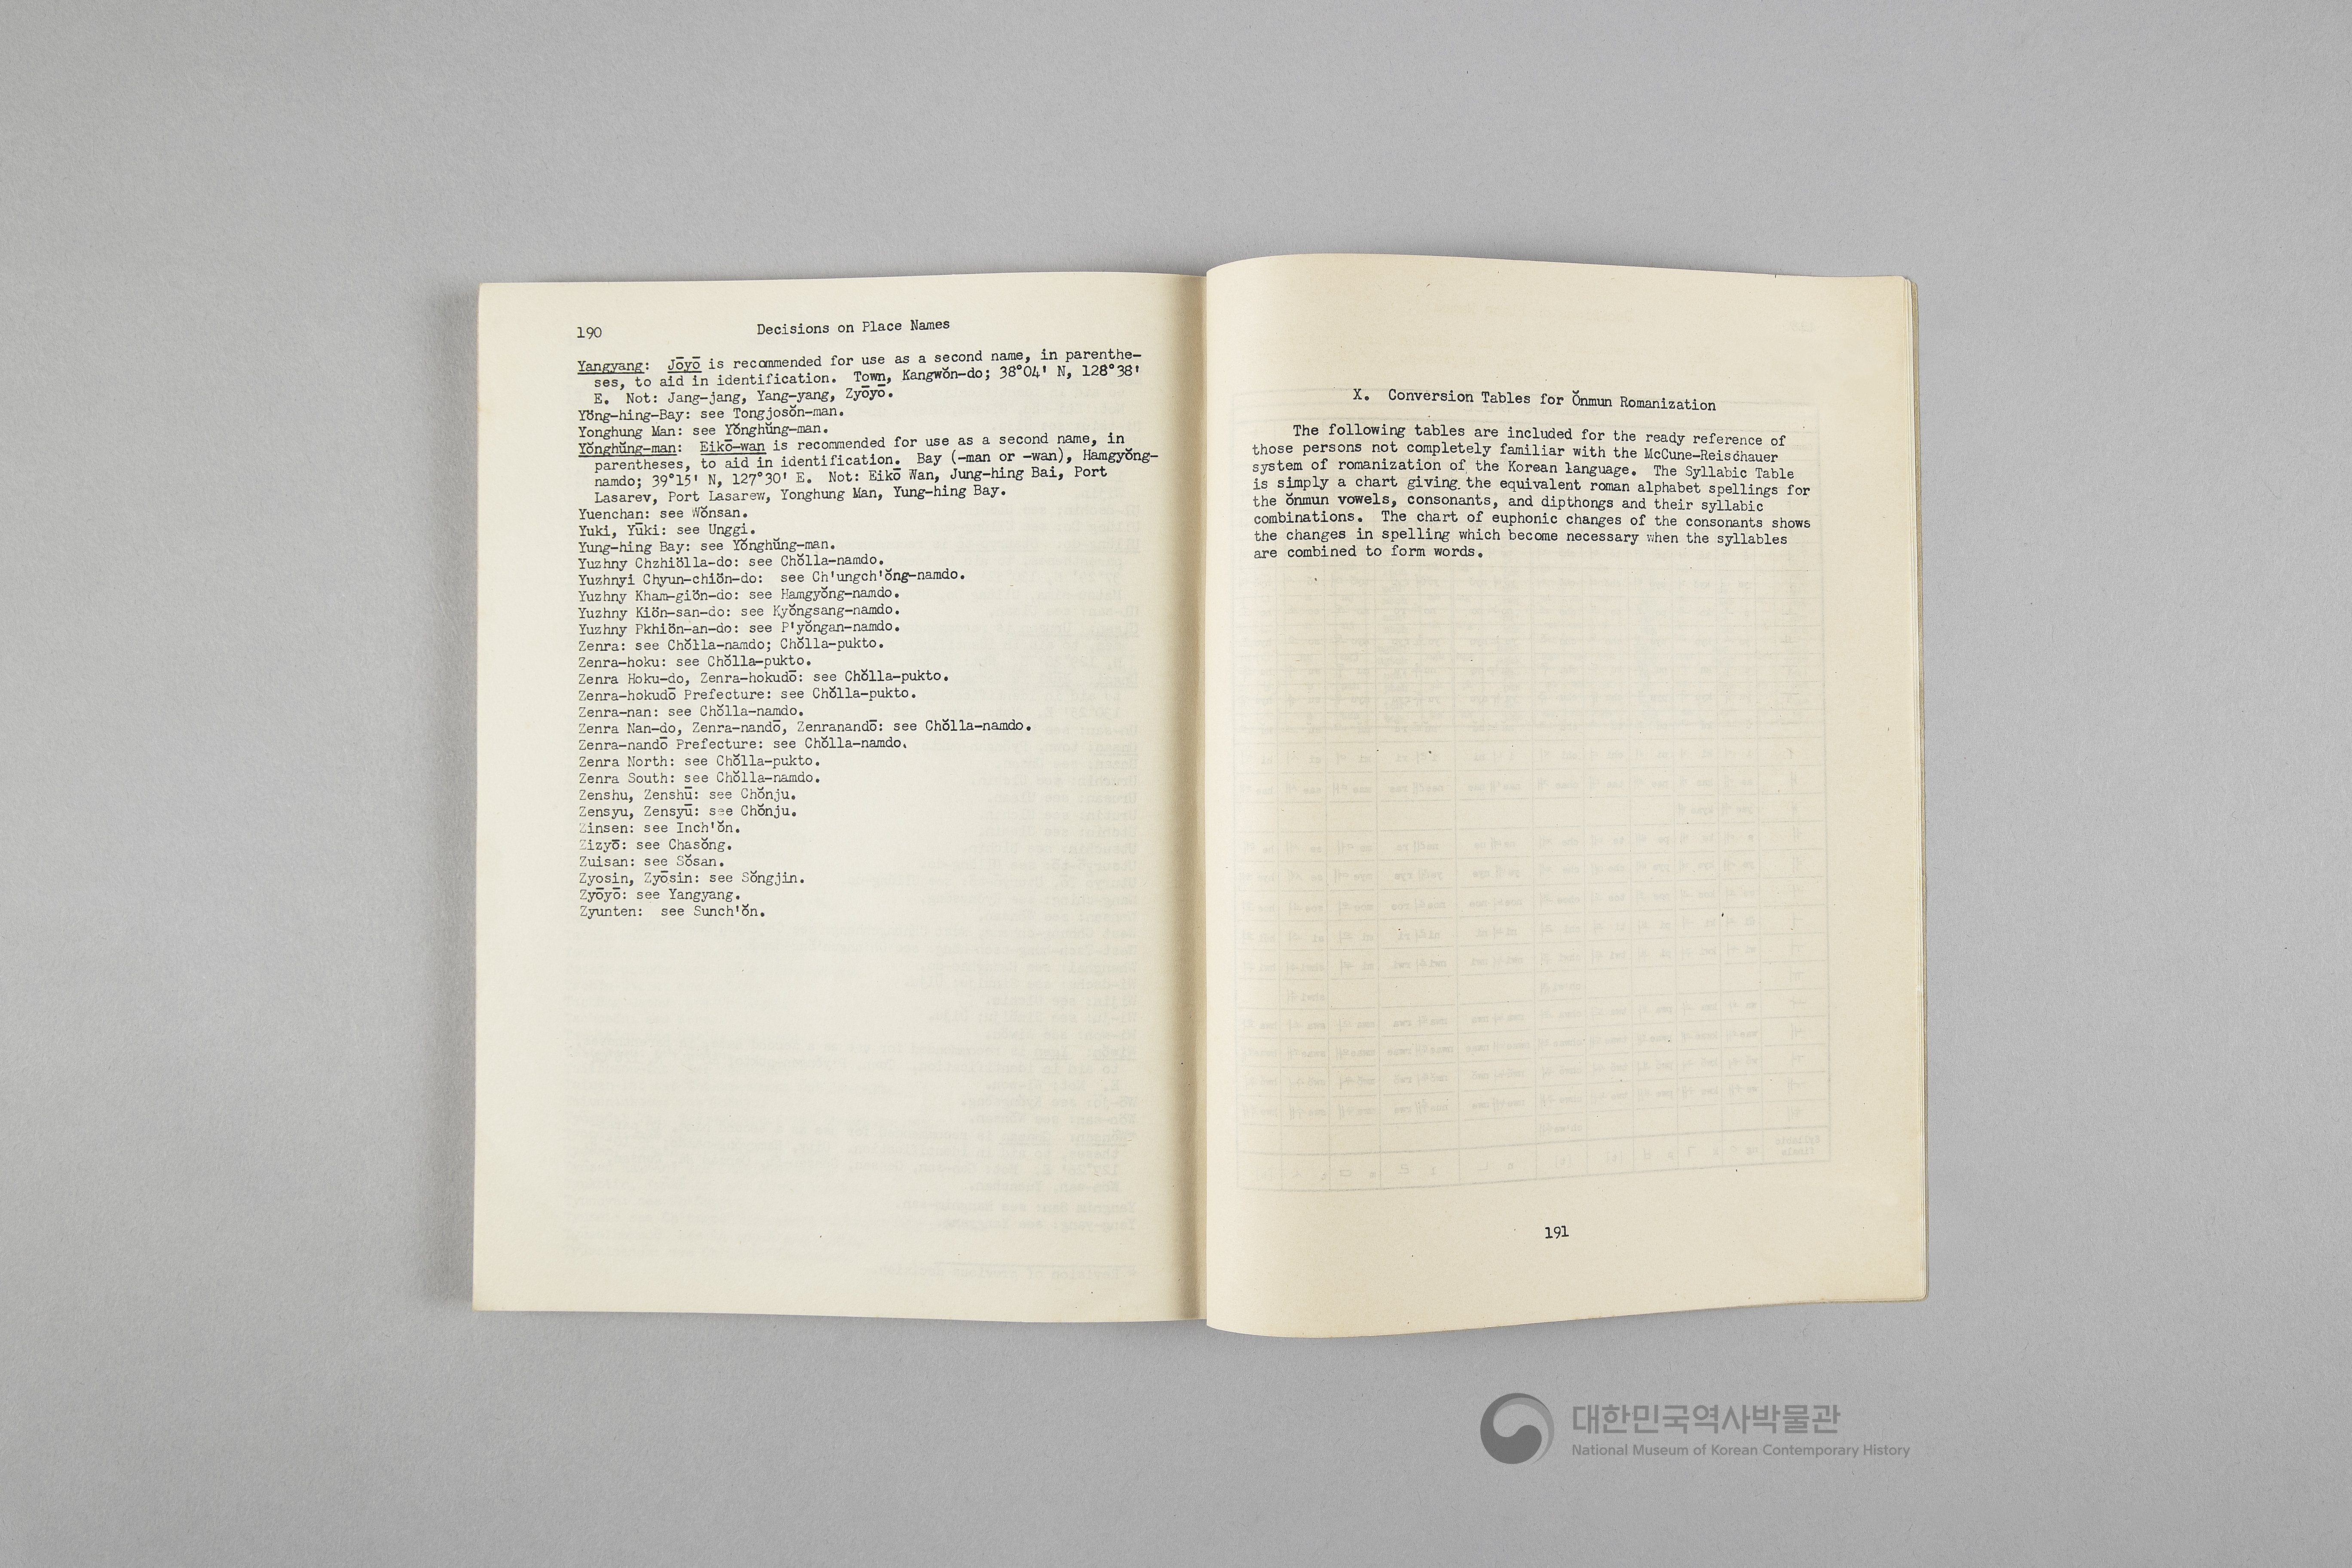 190
Decisions on Place Names
Yangyang: Jōyō is recommended for use as a second name, in parenthe-
ses, to aid in identification. Town, Kangwŏn-do; 38°04' N, 128°38'
E. Not: Jang-jang, Yang-yang, Zyōyō.
Yŏng-hing-Bay: see Tongjosŏn-man.
Yonghung Man: see Yŏnghŭng-man.
Yŏnghŭng-man: Eikō-wan is recommended for use as a second name, in
parentheses, to aid in identification. Bay (-man or -wan), Hamgyŏng-
namdo; 39°15' N, 127°30' E. Not: Eikō Wan, Jung-hing Bai, Port
Lasarev, Port Lasarew, Yonghung Man, Yung-hing Bay.
Yuenchan: see Wŏnsan.
Yuki, Yūki: see Unggi.
Yung-hing Bay: see Yŏnghŭng-man.
Yuzhny Chzhiŏlla-do: see Chŏlla-namdo.
Yuzhnyi Chyun-chiŏn-do: see Ch'ungch'ŏng-namdo.
Yuzhny Kham-giŏn-do: see Hamgyŏng-namdo.
Yuzhny Kiŏn-san-do: see Kyŏngsang-namdo.
Yuzhny Pkhiŏn-an-do: see P'yŏngan-namdo.
Zenra: see Chŏlla-namdo; Chŏlla-pukto.
Zenra-hoku: see Chŏlla-pukto.
Zenra Hoku-do, Zenra-hokudō: see Chŏlla-pukto.
Zenra-hokudō Prefecture: see Chŏlla-pukto.
Zenra-nan: see Chŏlla-namdo.
Zenra Nan-do, Zenra-nandō, Zenranandō: see Chŏlla-namdo.
Zenra-nandō Prefecture: see Chŏlla-namdo.
Zenra North: see Chŏlla-pukto.
Zenra South: see Chŏlla-namdo.
Zenshu, Zenshū: see Chŏnju.
Zensyu, Zensyū: see Chŏnju.
Zinsen: see Inch'ŏn.
Zizyō: see Chasŏng.
Zuisan: see Sŏsan.
Zyosin, Zyōsin: see Sŏngjin.
Zyōyō: see Yangyang.
Zyunten: see Sunch'ŏn.
X. Conversion Tables for Ŏnmun Romanization
The following tables are included for the ready reference of
those persons not completely familiar with the McCune-Reischauer
system of romanization of the Korean language. The Syllabic Table
is simply a chart giving the equivalent roman alphabet spellings for
the ŏnmun vowels, consonants, and dipthongs and their syllabic
combinations. The chart of euphonic changes of the consonants shows
the changes in spelling which become necessary when the syllables
are combined to form words.
191
대한민국역사박물관
National Museum of Korean Contemporary History